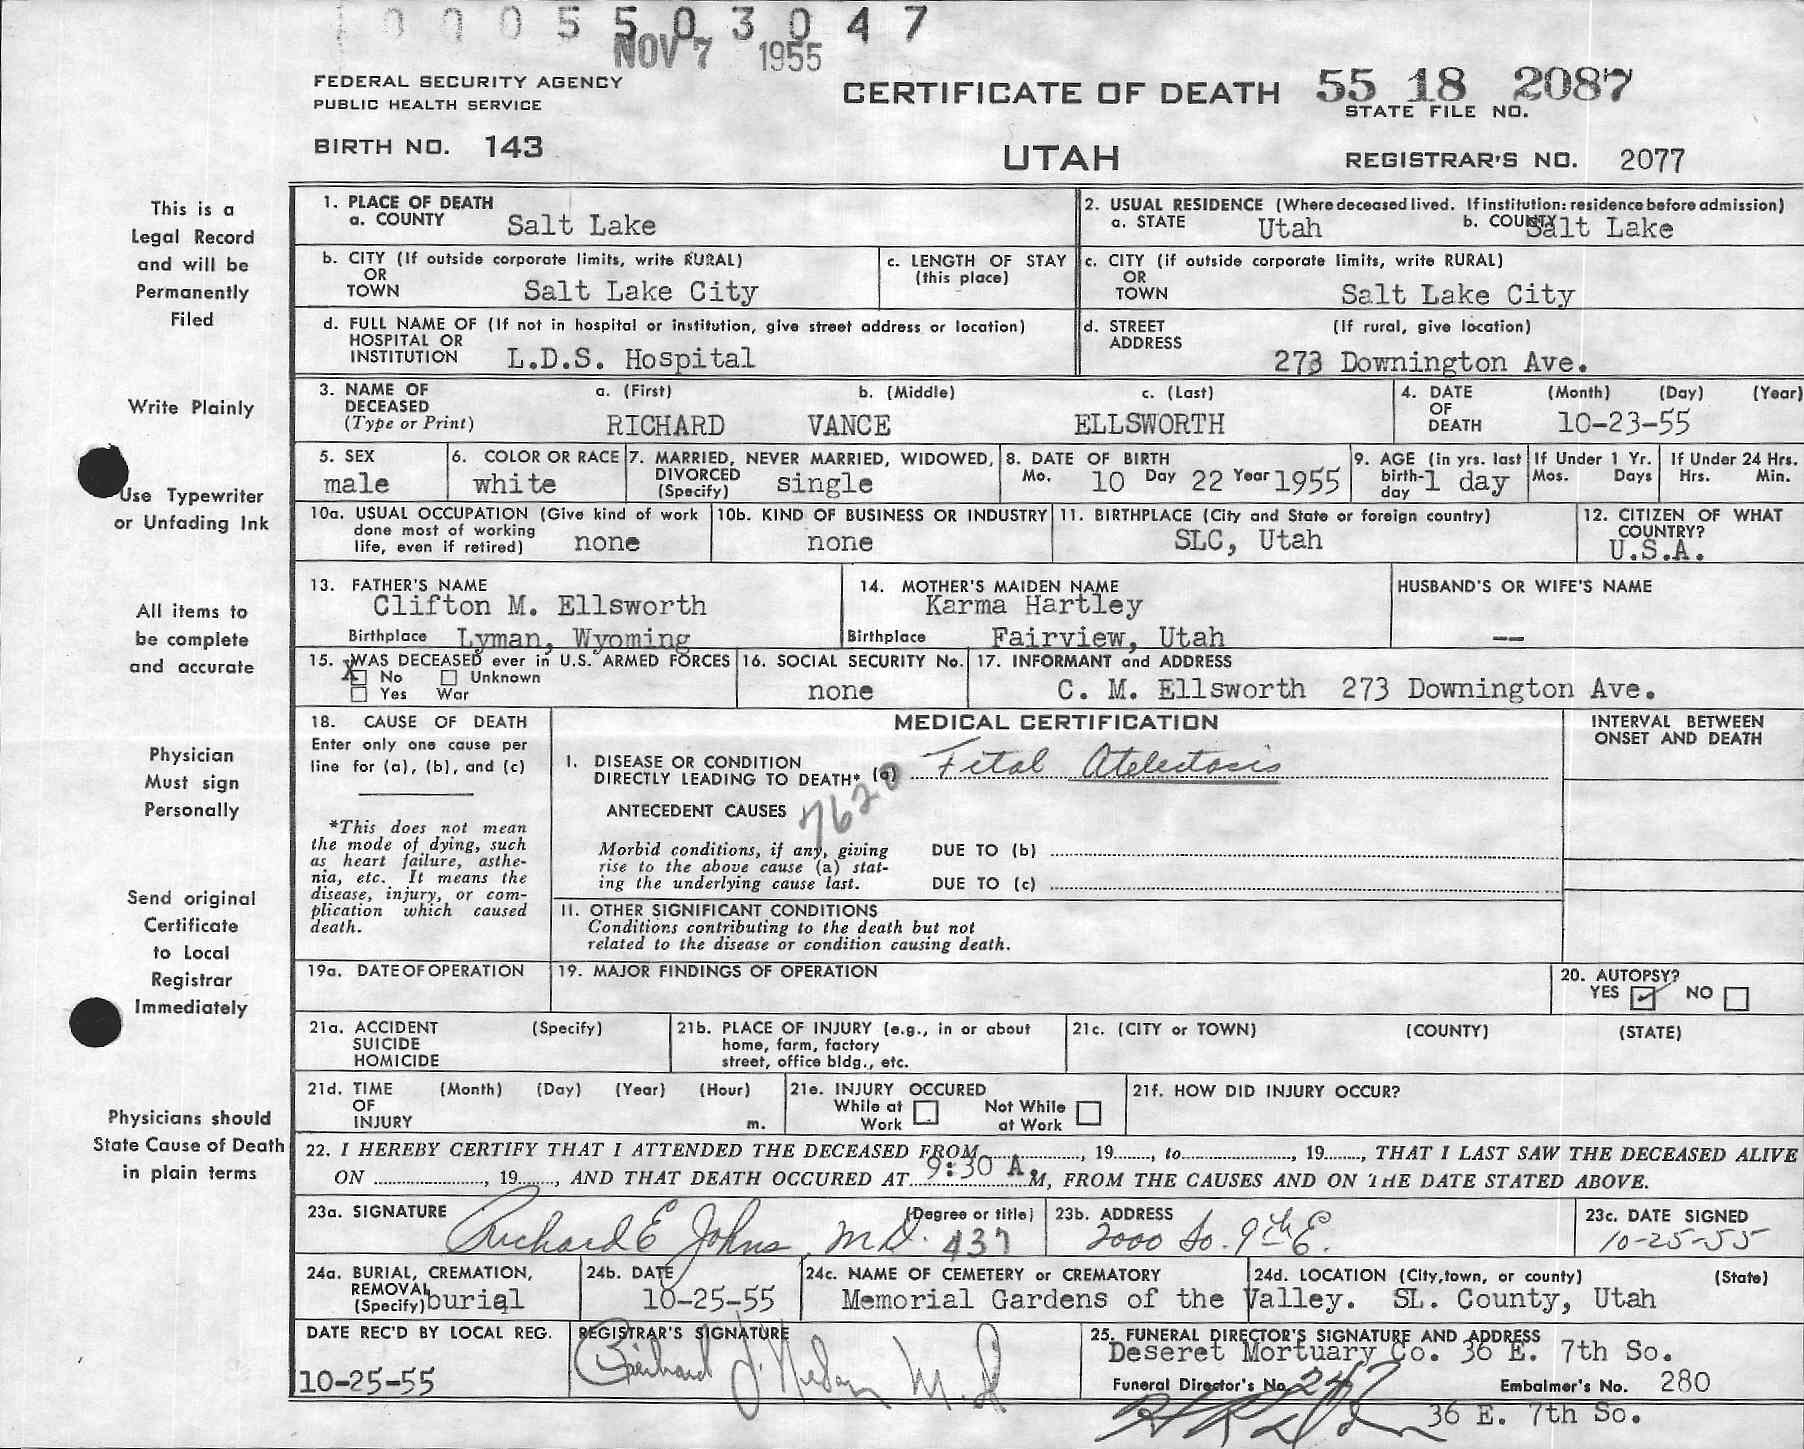 1 0 0 0 5 5 0 3 0 4 7
NOV 7 1955
FEDERAL SECURITY AGENCY
PUBLIC HEALTH SERVICE
CERTIFICATE OF DEATH 55 18 2087
STATE FILE NO.
BIRTH NO. 143
UTAH
REGISTRAR'S NO. 2077
This is a
Legal Record
and will be
Permanently
Filed
Write Plainly
Use Typewriter
or Unfading Ink
All items to
be complete
and accurate
Physician
Must sign
Personally
Send original
Certificate
to Local
Registrar
Immediately
Physicians should
State Cause of Death
in plain terms
1. PLACE OF DEATH
a. COUNTY Salt Lake
2. USUAL RESIDENCE (Where deceased lived. If institution: residence before admission)
a. STATE Utah b. COUNTY Salt Lake
b. CITY (If outside corporate limits, write RURAL)
OR
TOWN Salt Lake City
c. LENGTH OF STAY
(this place)
c. CITY (if outside corporate limits, write RURAL)
OR
TOWN Salt Lake City
d. FULL NAME OF (If not in hospital or institution, give street address or location)
HOSPITAL OR
INSTITUTION L.D.S. Hospital
d. STREET (If rural, give location)
ADDRESS
273 Downington Ave.
3. NAME OF a. (First) b. (Middle) c. (Last)
DECEASED
(Type or Print) RICHARD VANCE ELLSWORTH
4. DATE (Month) (Day) (Year)
OF
DEATH 10-23-55
5. SEX
male
6. COLOR OR RACE
white
7. MARRIED, NEVER MARRIED, WIDOWED,
DIVORCED
(Specify) single
8. DATE OF BIRTH
Mo. 10 Day 22 Year 1955
9. AGE (in yrs. last
birth-
day 1 day
If Under 1 Yr.
Mos. Days
If Under 24 Hrs.
Hrs. Min.
10a. USUAL OCCUPATION (Give kind of work
done most of working
life, even if retired) none
10b. KIND OF BUSINESS OR INDUSTRY
none
11. BIRTHPLACE (City and State or foreign country)
SLC, Utah
12. CITIZEN OF WHAT
COUNTRY?
U.S.A.
13. FATHER'S NAME
Clifton M. Ellsworth
Birthplace Lyman, Wyoming
14. MOTHER'S MAIDEN NAME
Karma Hartley
Birthplace Fairview, Utah
HUSBAND'S OR WIFE'S NAME
--
15. WAS DECEASED ever in U.S. ARMED FORCES
X No Unknown
Yes War
16. SOCIAL SECURITY No.
none
17. INFORMANT and ADDRESS
C. M. Ellsworth 273 Downington Ave.
18. CAUSE OF DEATH
Enter only one cause per
line for (a), (b), and (c)
*This does not mean
the mode of dying, such
as heart failure, asthe-
nia, etc. It means the
disease, injury, or com-
plication which caused
death.
MEDICAL CERTIFICATION
INTERVAL BETWEEN
ONSET AND DEATH
I. DISEASE OR CONDITION
DIRECTLY LEADING TO DEATH* (a) Fetal Atelectasis
ANTECEDENT CAUSES 7620
Morbid conditions, if any, giving
rise to the above cause (a) stat-
ing the underlying cause last.
DUE TO (b)
DUE TO (c)
II. OTHER SIGNIFICANT CONDITIONS
Conditions contributing to the death but not
related to the disease or condition causing death.
19a. DATE OF OPERATION
19. MAJOR FINDINGS OF OPERATION
20. AUTOPSY?
YES ✓ NO
21a. ACCIDENT (Specify)
SUICIDE
HOMICIDE
21b. PLACE OF INJURY (e.g., in or about
home, farm, factory
street, office bldg., etc.
21c. (CITY or TOWN) (COUNTY) (STATE)
21d. TIME (Month) (Day) (Year) (Hour)
OF
INJURY m.
21e. INJURY OCCURED
While at Not While
Work at Work
21f. HOW DID INJURY OCCUR?
22. I HEREBY CERTIFY THAT I ATTENDED THE DECEASED FROM, 19, to, 19, THAT I LAST SAW THE DECEASED ALIVE
ON, 19, AND THAT DEATH OCCURED AT 9:30 A. M, FROM THE CAUSES AND ON THE DATE STATED ABOVE.
23a. SIGNATURE (Degree or title)
Richard E Johns M.D. 437
23b. ADDRESS
2000 So. 9th E.
23c. DATE SIGNED
10-25-55
24a. BURIAL, CREMATION,
REMOVAL
(Specify) burial
24b. DATE
10-25-55
24c. NAME OF CEMETERY or CREMATORY
Memorial Gardens of the Valley.
24d. LOCATION (City, town, or county) (State)
SL. County, Utah
DATE REC'D BY LOCAL REG.
10-25-55
REGISTRAR'S SIGNATURE
25. FUNERAL DIRECTOR'S SIGNATURE AND ADDRESS
Deseret Mortuary Co. 36 E. 7th So.
Funeral Director's No. 247 Embalmer's No. 280
36 E. 7th So.